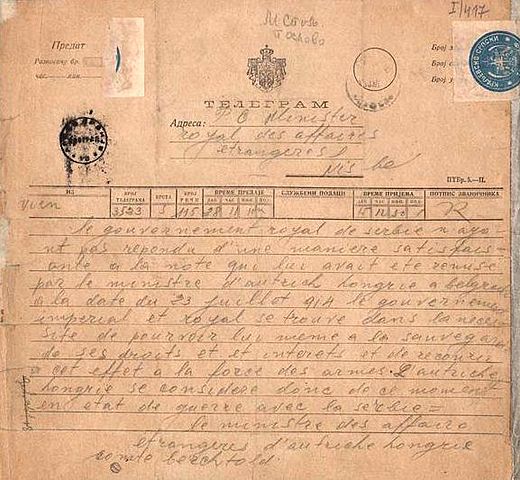 I/417
М Стол.
Предат
Разносачу бр.
час. — мин.
Број
Број
Број
КРАЉЕВСКО-СРПСКИ
ТЕЛЕГРАМ
Адреса: P O Minister
royal des affaires
etrangeres
Nis
ПТБр. 5.—П.
ИЗ БРОЈ ТЕЛЕГРАМА ВРСТА БРОЈ РЕЧИ ВРЕМЕ ПРЕДАЈЕ СЛУЖБЕНИ ПОДАЦИ ВРЕМЕ ПРИЈЕМА ПОТПИС ЗВАНИЧНИКА
ДАН ЧАС МИН. ДАН ЧАС МИН.
vien 3523 5 115 28 11 10 15 12 30
le gouvernement royal de serbie n ayo
nt pas repondu d'une maniere satisfais-
ante a la note qui lui avait ete remise
par le ministre d'autrich hongrie a belgrad
a la date du 23 juillet 914 le gouvernement
imperial et royal se trouve dans la neces
site de pourvoir lui meme a la sauvegar
de ses droits et et interets et de recourir
a cet effet a la force des armes l autriche
hongrie se considere donc de ce moment
en etat de guerre avec la serbie =
le ministre des affaire
etrangeres d'autriche hongrie
comte berchtold